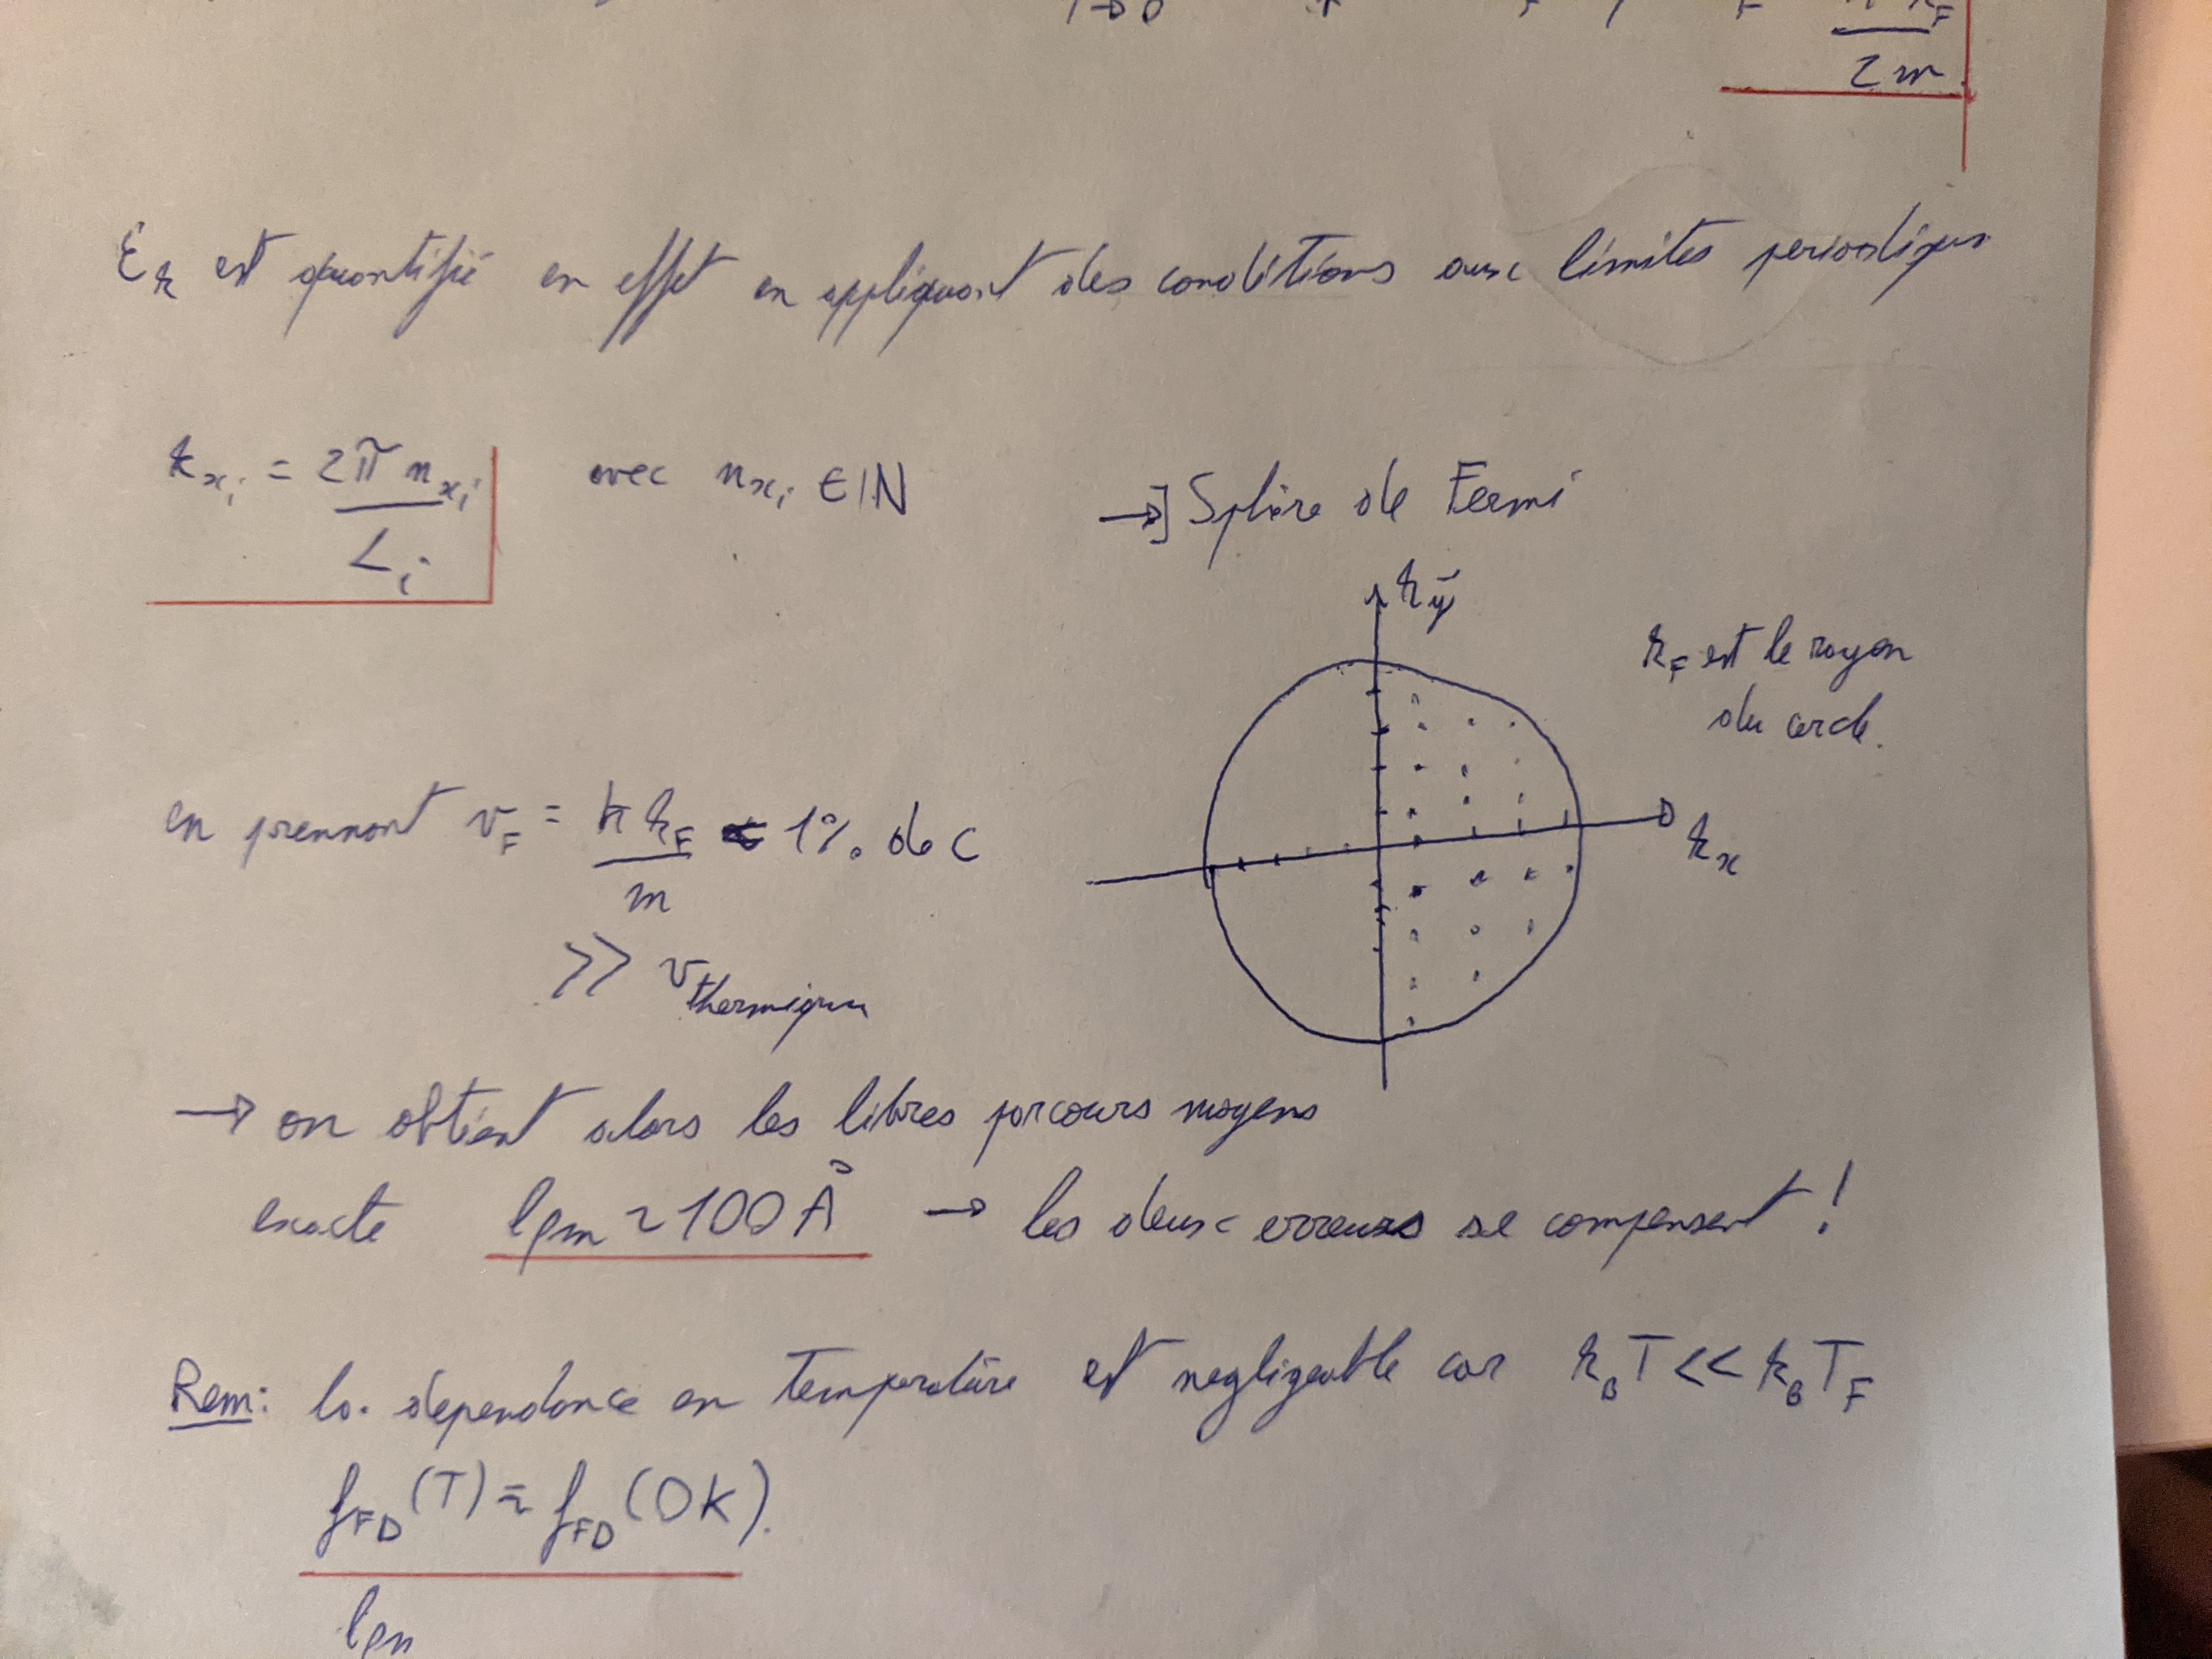 2m
E_k est quantifié en effet en appliquant des conditions aux limites periodiques
k_{x_i} = 2π n_{x_i} / L_i avec n_{x_i} ∈ ℕ → Sphère de Fermi
k_F est le rayon
du cercle
k_y
k_x
en prenant v_F = ħk_F / m 1% de c
>> v_thermique
→ on obtient alors les libres parcours moyens
exacte lpm ~ 100 Å → les deux erreurs se compensent !
Rem: la dependance en temperature est negligeable car k_B T << k_B T_F
f_FD (T) ≈ f_FD (0K).
lpm